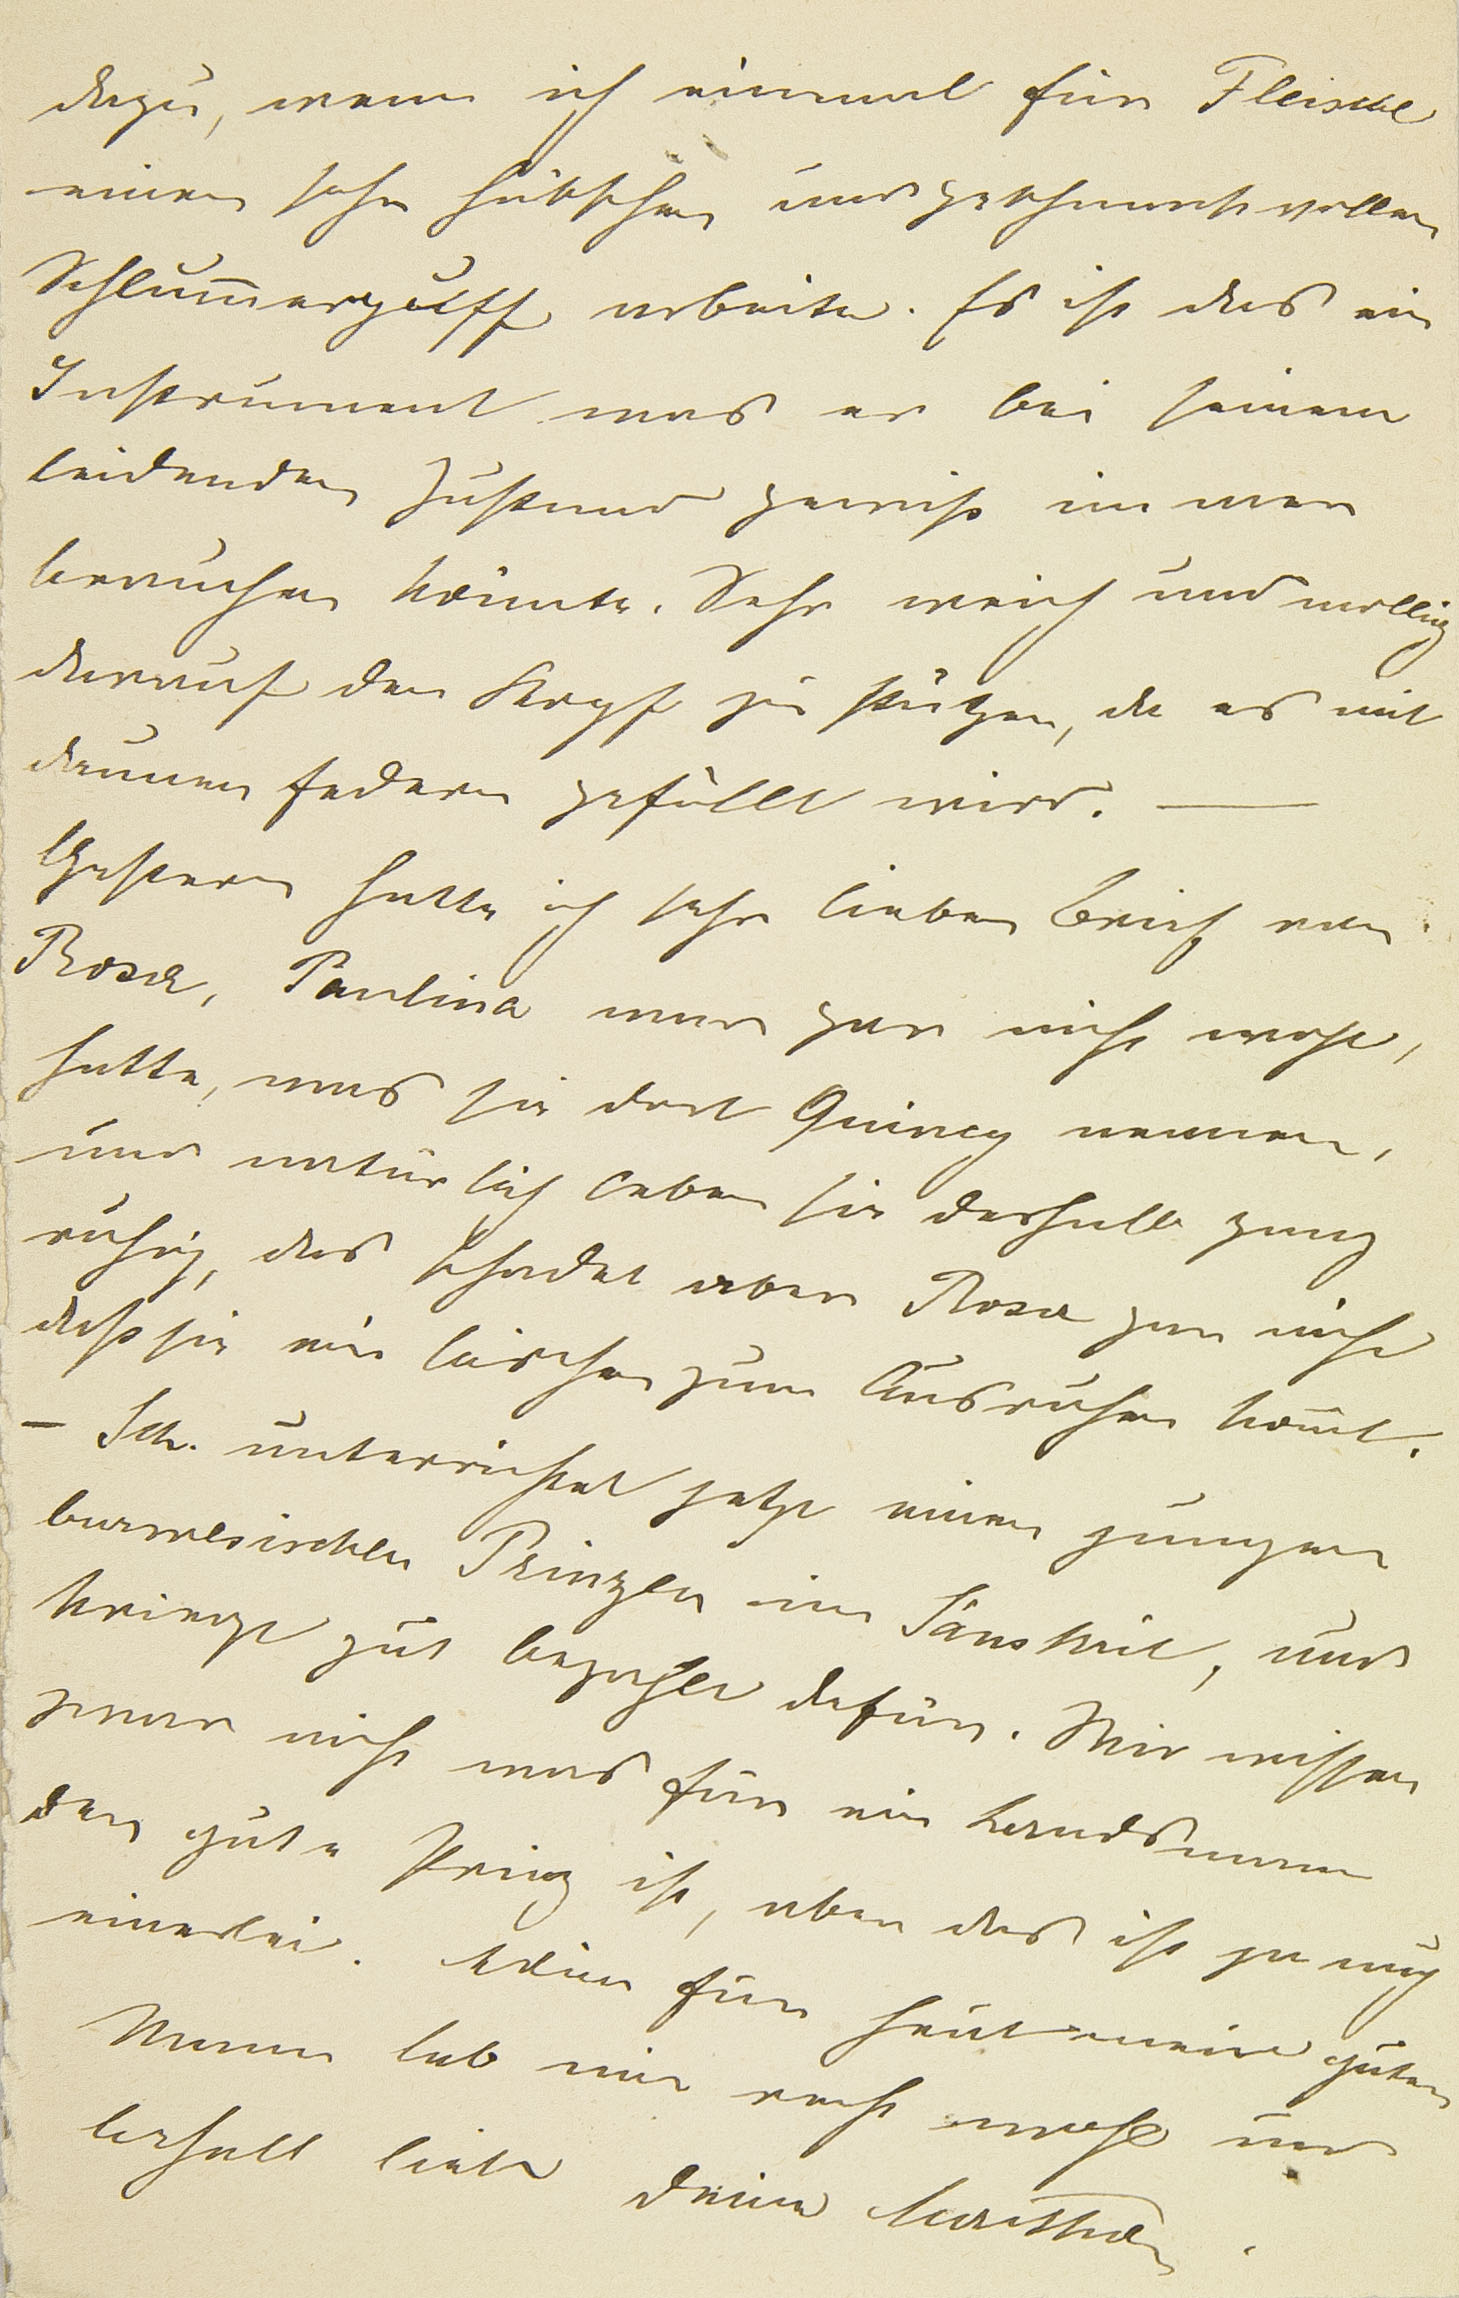 dazu, wenn ich einmal für Fleischl
einen sehr hübschen und geschmackvollen
Schlum̄erpuff arbeite. Es ist das ein
Instrument was er bei seinem
leidenden Zustand gewiss immer
brauchen könnte. Sehr weich und mollig
darauf den Kopf zu stützen, da es mit
daunen federn gefüllt wird. —
Gestern hatte ich sehr lieben Brief von
Rosa, Paulina war gar nicht wohl,
hatte, was sie dort Quincy nennen,
und natürlich leben sie deshalb ganz
ruhig, das schadet aber Rosa gar nicht
dass sie ein bischen zum Ausruhen kom̄t.
– Sch. unterrichtet jetzt einen jungen
burmesischen Prinzen im Sanskrit, und
kriegt gut bezahlt dafür. Wir wissen
zwar nicht was für ein Landsmann
der gute Prinz ist, aber das ist ja auch
einerlei. Adieu für heut meine guten
Mann leb mir recht wohl und
behalt lieb deine Martha.